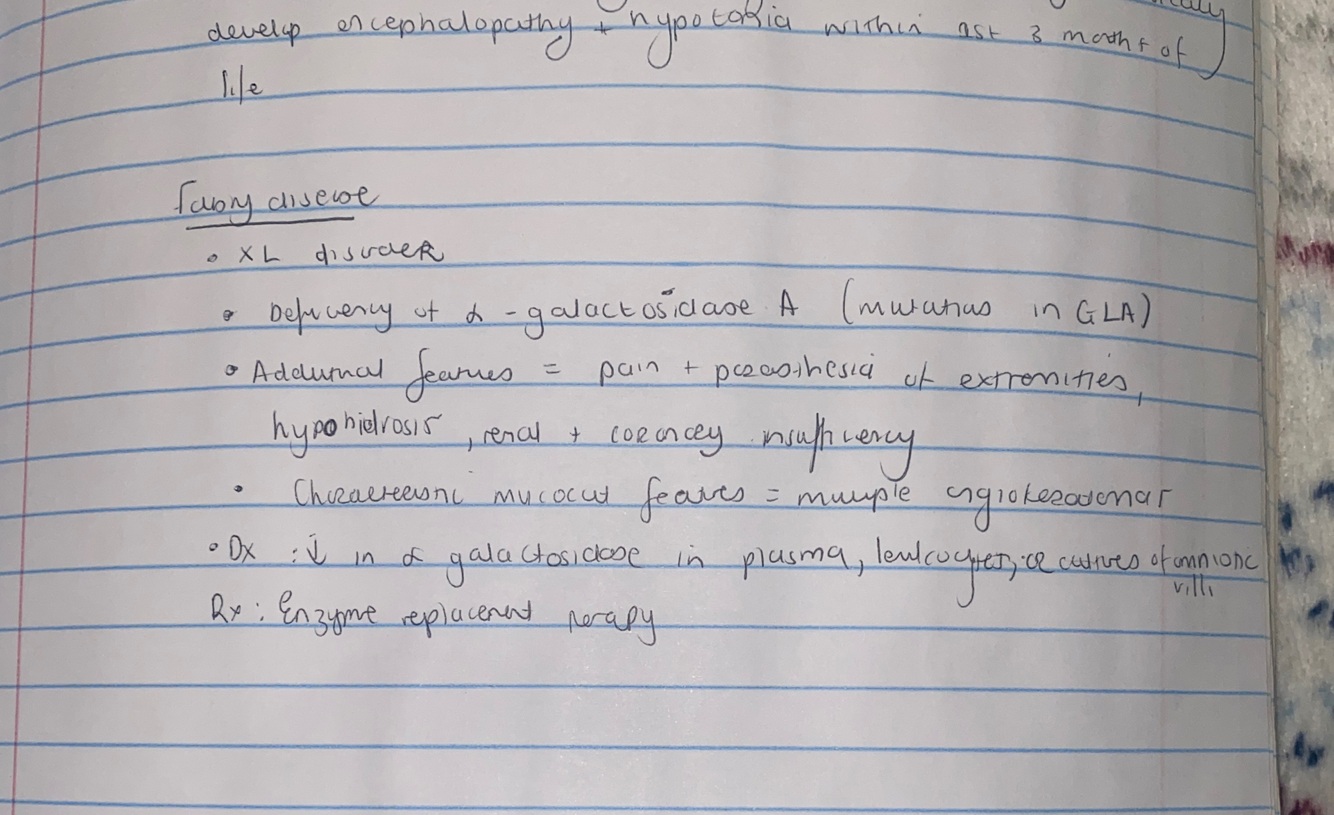 develop encephalopathy + hypotonia within 1st 3 months of
life
Fabry disease
• XL disorder
• Deficiency of α-galactosidase A (mutations in GLA)
• Additional features = pain + paraesthesia of extremities,
hypohidrosis, renal + coronary insufficiency
• Characteristic mucocut features = multiple angiokeratomas
• Dx : ↓ in α galactosidase in plasma, leukocytes, or cultures of amnionic
villi
Rx : Enzyme replacement therapy